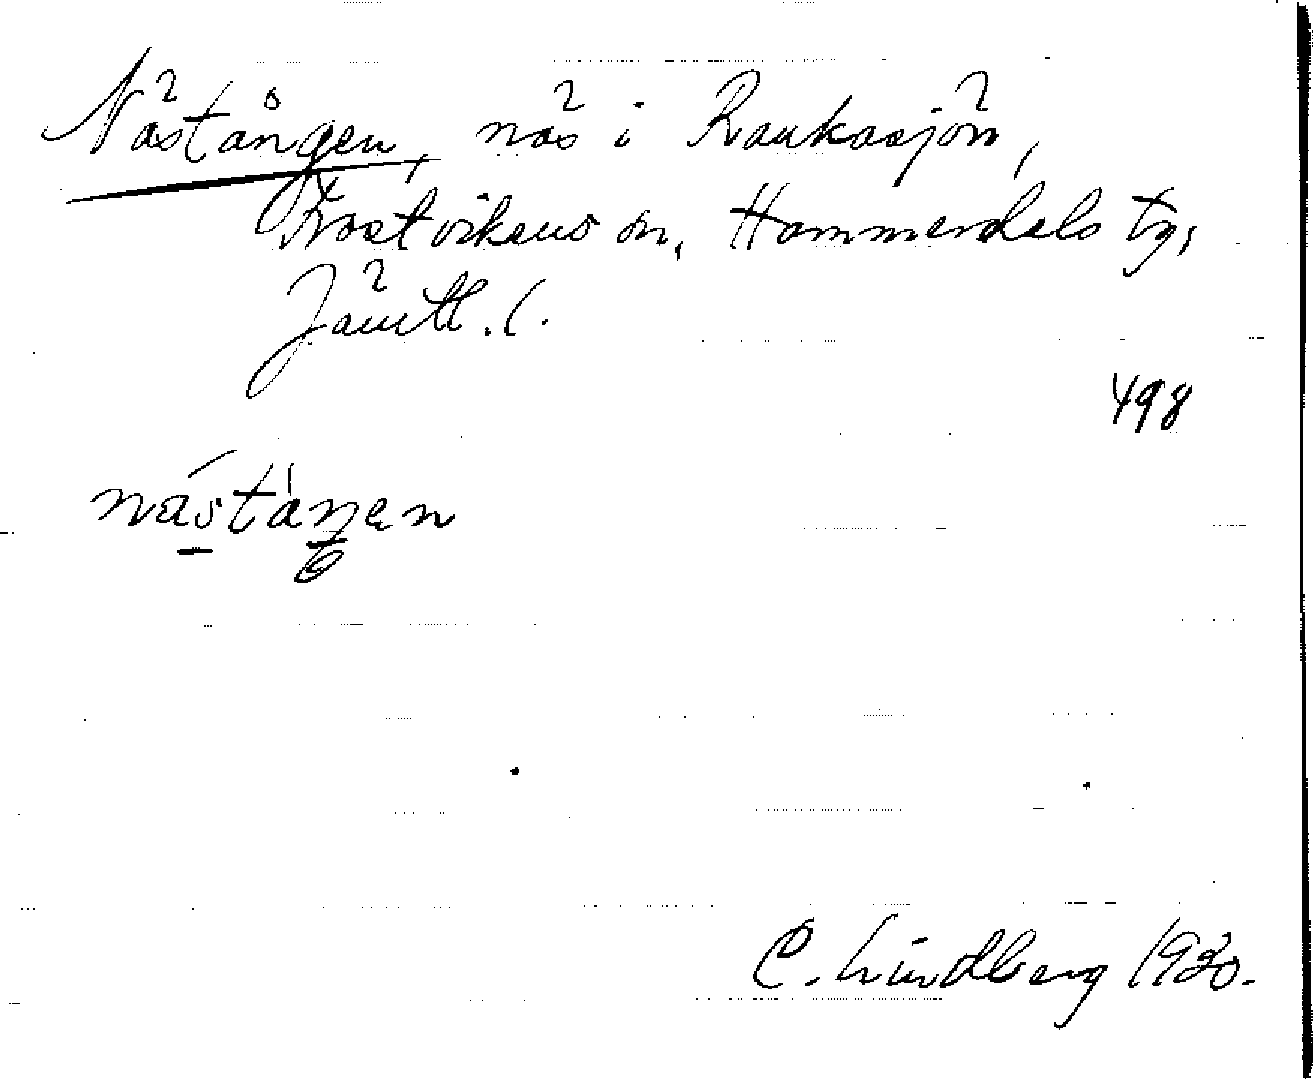 Näståugen, näs i Raukasjön,
Frostvikens sn, Hammerdals tg,
Jämtl. l.
498
nästáŋen
C. Lindberg 1930.